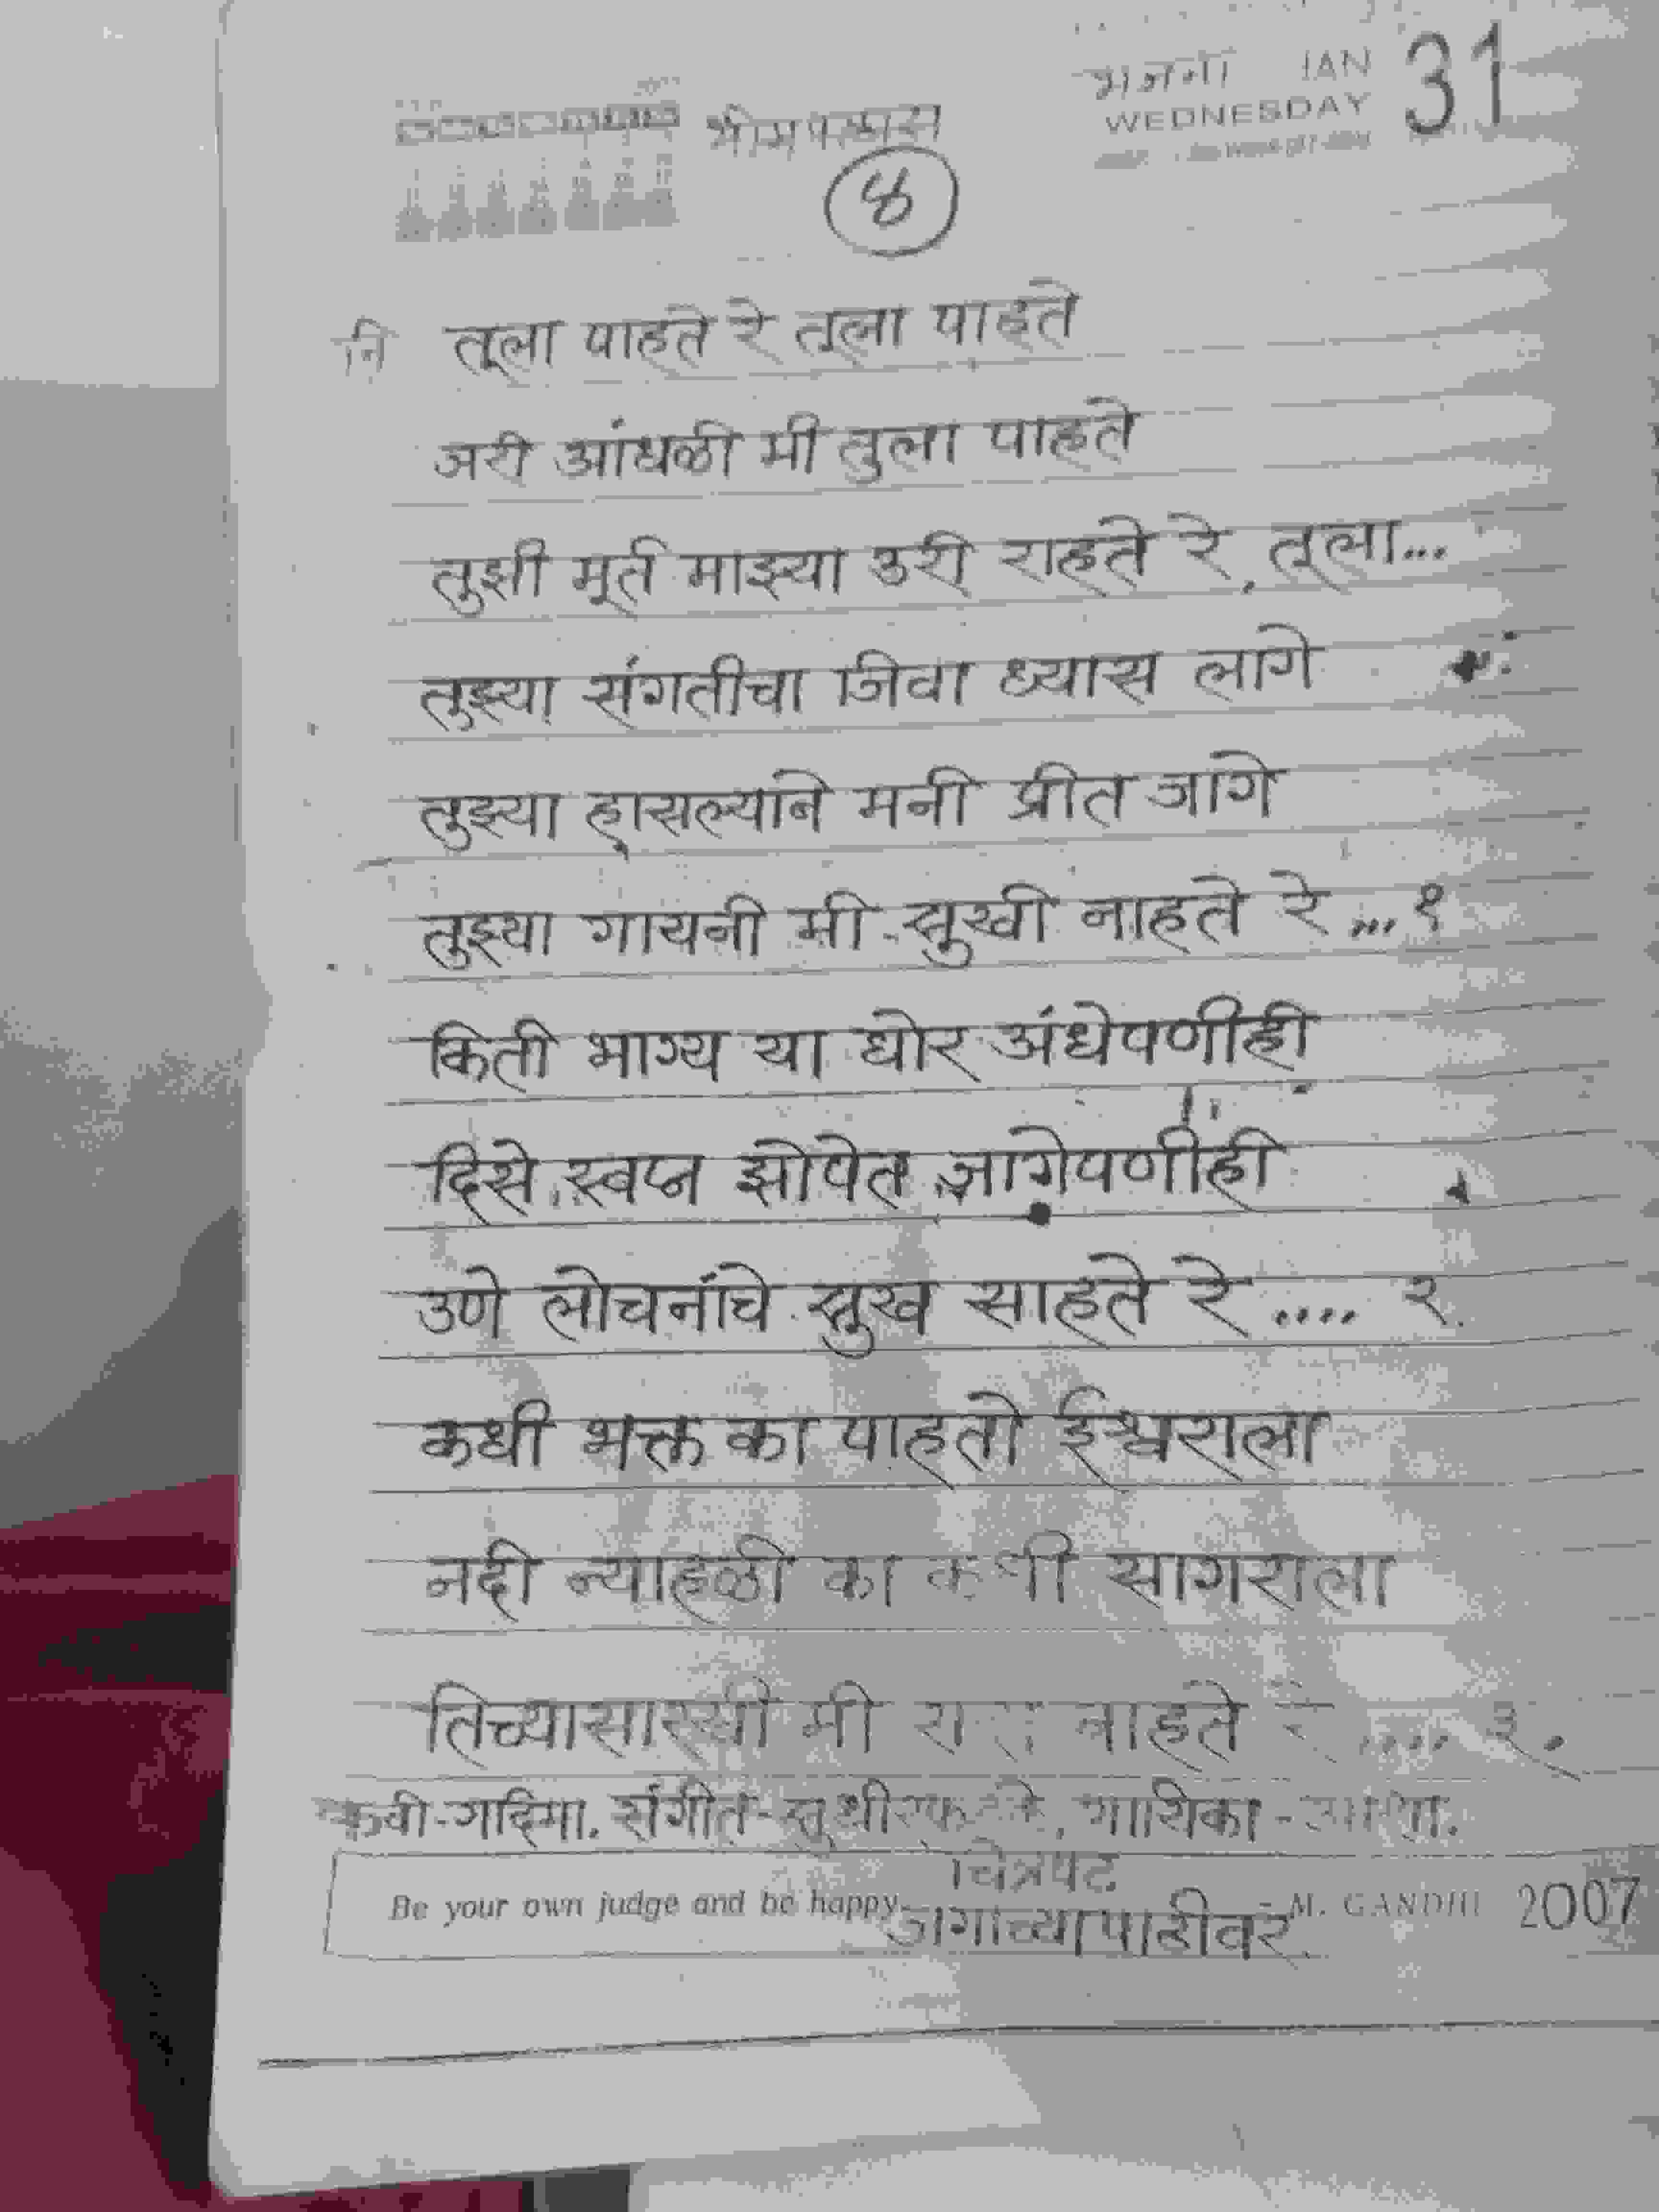 भजनी JAN 31
WEDNESDAY
भीमपलास
४
नि तूला पाहते रे तूला पाहते
जरी आंधळी मी तुला पाहते
तुझी मूर्त माझ्या उरी राहते रे, तूला...
तुझ्या संगतीचा जिवा ध्यास लागे
तुझ्या हासल्याने मनी प्रीत जागे
तुझ्या गायनी मी सुखी नाहते रे ... १
किती भाग्य या घोर अंधेपणीही
दिसे स्वप्न झोपेत जागेपणीही
उणे लोचनांचे सुख साहते रे .... २
कधी भक्त का पाहतो ईश्वराला
नदी न्याहळी का कधी सागराला
तिच्यासारखी मी वाहते रे .... ३.
कवी-गदिमा. संगीत-सुधीर फडके, गायिका-आशा.
चित्रपट
Be your own judge and be happy. - M. GANDHI 2007
जगाच्या पाठीवर.